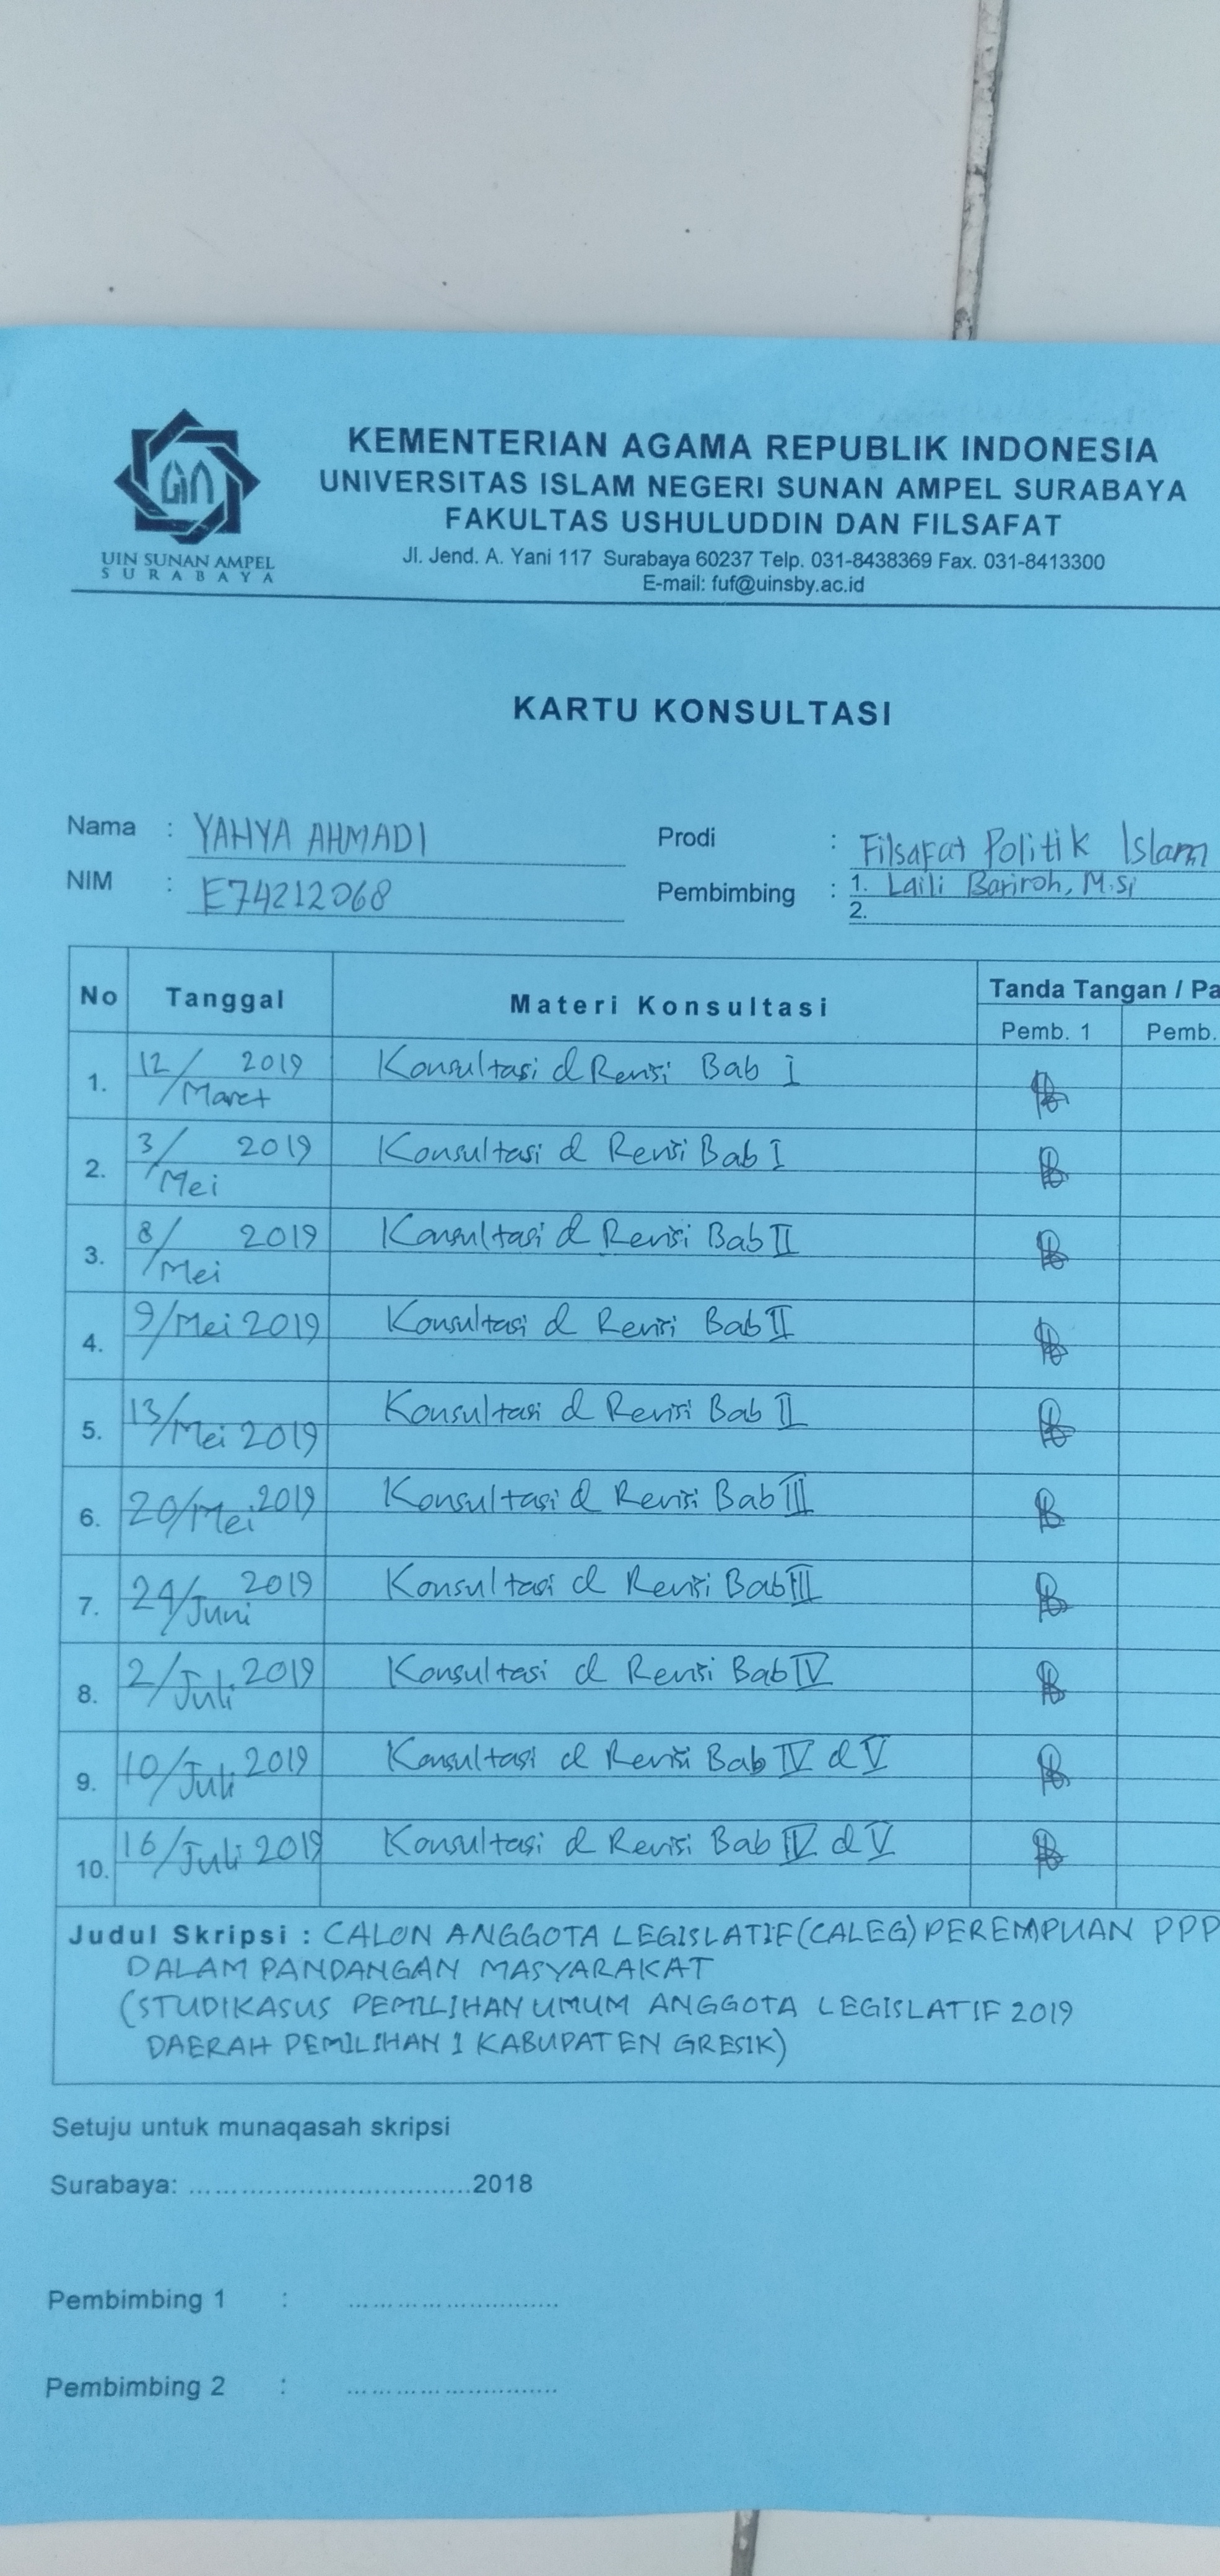 KEMENTERIAN AGAMA REPUBLIK INDONESIA
UNIVERSITAS ISLAM NEGERI SUNAN AMPEL SURABAYA
FAKULTAS USHULUDDIN DAN FILSAFAT
Jl. Jend. A. Yani 117 Surabaya 60237 Telp. 031-8438369 Fax. 031-8413300
E-mail: fuf@uinsby.ac.id
UIN SUNAN AMPEL
SURABAYA
KARTU KONSULTASI
Nama : YAHYA AHMADI
Prodi : Filsafat Politik Islam
NIM : E74212068
Pembimbing : 1. Laili Bariroh, M.Si
2.
No Tanggal Materi Konsultasi Tanda Tangan / Pa
Pemb. 1 Pemb.
1. 12/Maret 2019 Konsultasi & Revisi Bab I
2. 3/Mei 2019 Konsultasi & Revisi Bab I
3. 8/Mei 2019 Konsultasi & Revisi Bab II
4. 9/Mei 2019 Konsultasi & Revisi Bab II
5. 13/Mei 2019 Konsultasi & Revisi Bab II
6. 20/Mei 2019 Konsultasi & Revisi Bab III
7. 24/Juni 2019 Konsultasi & Revisi Bab III
8. 2/Juli 2019 Konsultasi & Revisi Bab IV
9. 10/Juli 2019 Konsultasi & Revisi Bab IV & V
10. 16/Juli 2019 Konsultasi & Revisi Bab IV & V
Judul Skripsi : CALON ANGGOTA LEGISLATIF (CALEG) PEREMPUAN PPP
DALAM PANDANGAN MASYARAKAT
(STUDI KASUS PEMILIHAN UMUM ANGGOTA LEGISLATIF 2019
DAERAH PEMILIHAN 1 KABUPATEN GRESIK)
Setuju untuk munaqasah skripsi
Surabaya: ....................................2018
Pembimbing 1 : ............................
Pembimbing 2 : ............................